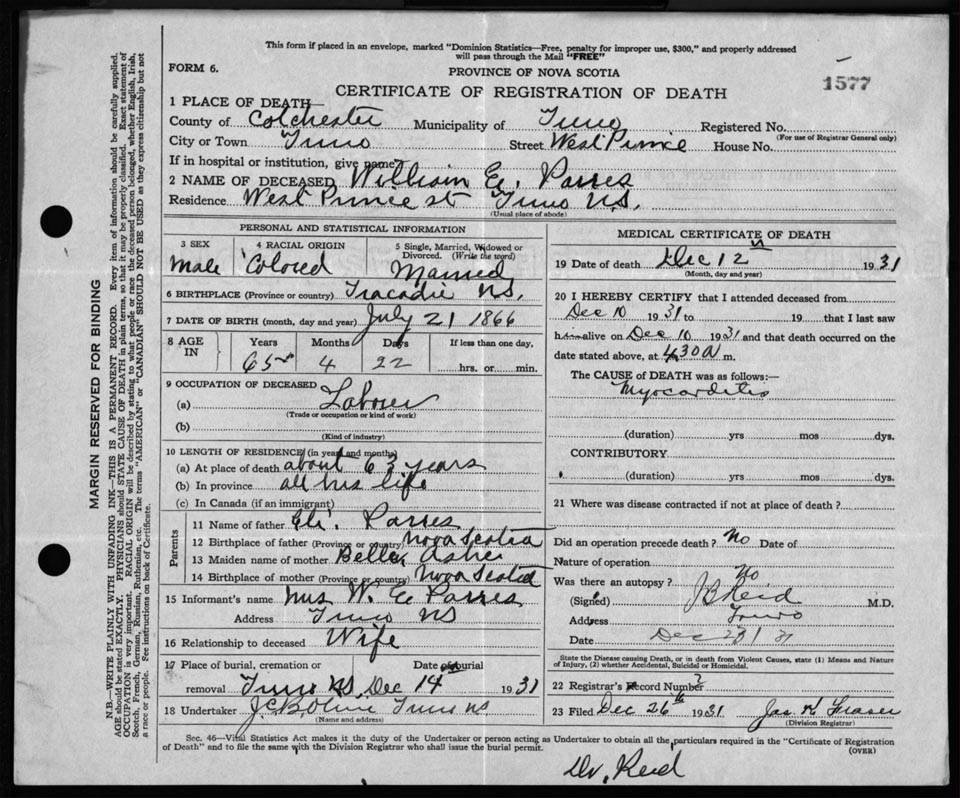 This form if placed in an envelope, marked "Dominion Statistics—Free, penalty for improper use, $300," and properly addressed
will pass through the Mail "FREE"
FORM 6.
PROVINCE OF NOVA SCOTIA
1577
CERTIFICATE OF REGISTRATION OF DEATH
1 PLACE OF DEATH—
County of Colchester Municipality of Truro Registered No.
(For use of Registrar General only)
City or Town Truro Street West Prince House No.
If in hospital or institution, give name?
2 NAME OF DECEASED William E. Parres
Residence West Prince st Truro N.S.
(Usual place of abode)
PERSONAL AND STATISTICAL INFORMATION
3 SEX
Male
4 RACIAL ORIGIN
Colored
5 Single, Married, Widowed or
Divorced. (Write the word)
Married
6 BIRTHPLACE (Province or country) Tracadie N.S.
7 DATE OF BIRTH (month, day and year) July 21 1866
8 AGE
IN
Years Months Days If less than one day,
65 4 22 hrs. or min.
9 OCCUPATION OF DECEASED
(a) Laborer
(Trade or occupation or kind of work)
(b)
(Kind of industry)
10 LENGTH OF RESIDENCE (in years and months)
(a) At place of death about 63 years
(b) In province all his life
(c) In Canada (if an immigrant)
Parents
11 Name of father Eli. Parres
12 Birthplace of father (Province or country) Nova Scotia
13 Maiden name of mother Belle Asher
14 Birthplace of mother (Province or country) Nova Scotia
15 Informant's name Mrs W. E Parres
Address Truro NS
16 Relationship to deceased Wife
17 Place of burial, cremation or Date of burial
removal Truro NS, Dec 14th 1931
18 Undertaker Truro NS
(Name and address)
MEDICAL CERTIFICATE OF DEATH
19 Date of death Dec 12 1931
(Month, day and year)
20 I HEREBY CERTIFY that I attended deceased from
Dec 10 1931 to 19 that I last saw
him alive on Dec 10 1931 and that death occurred on the
date stated above, at 4.30 A m.
The CAUSE of DEATH was as follows:—
Myocarditis
(duration) yrs mos dys.
CONTRIBUTORY
(duration) yrs mos dys.
21 Where was disease contracted if not at place of death?
Did an operation precede death? No Date of
Nature of operation
Was there an autopsy? No
(Signed) Reid M.D.
Address Truro
Date Dec 23/31
State the Disease causing Death, or in death from Violent Causes, state (1) Means and Nature
of Injury, (2) whether Accidental, Suicidal or Homicidal.
22 Registrar's Record Number
23 Filed Dec 26th 1931 Jas. Fraser
(Division Registrar)
Sec. 46—Vital Statistics Act makes it the duty of the Undertaker or person acting as Undertaker to obtain all the particulars required in the "Certificate of Registration
of Death" and to file the same with the Division Registrar who shall issue the burial permit.
(OVER)
Dr. Reid
MARGIN RESERVED FOR BINDING
N.B.—WRITE PLAINLY WITH UNFADING INK—THIS IS A PERMANENT RECORD. Every item of information should be carefully supplied.
AGE should be stated EXACTLY. PHYSICIANS should STATE CAUSE OF DEATH in plain terms, so that it may be properly classified. Exact statement of
OCCUPATION is very important. RACIAL ORIGIN will be described by stating to what people or race the deceased person belonged, whether English, Irish,
Scotch, French, German, Russian, Ruthenian, etc. The terms "AMERICAN" or "CANADIAN" SHOULD NOT BE USED as they express citizenship but not
a race or people. See instructions on back of Certificate.